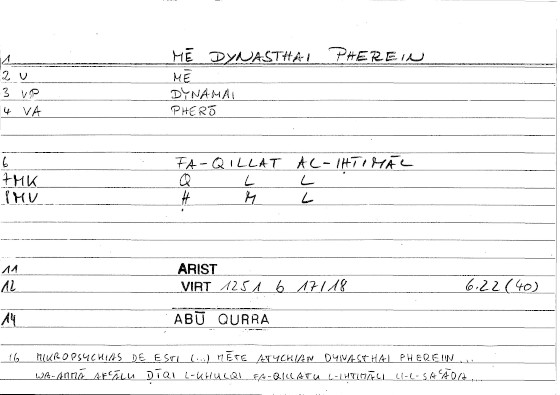 1 MĒ DYNASTHAI PHEREIN
2 V MĒ
3 VP DYNAMAI
4 VA PHERŌ
6 FA-QILLAT AL-IḤTIMĀL
7MK Q L L
8MV Ḥ M L
11 ARIST
12 VIRT 1251 b 17/18 6.22 (40)
14 ABŪ QURRA
16 MIKROPSYCHIAS DE ESTI (...) MĒTE ATYCHIAN DYNASTHAI PHEREIN ...
WA-AMMĀ AFʿĀLU ḌĪQI L-KHULQI FA-QILLATU L-IḤTIMĀLI LI-L-SAʿĀDA...